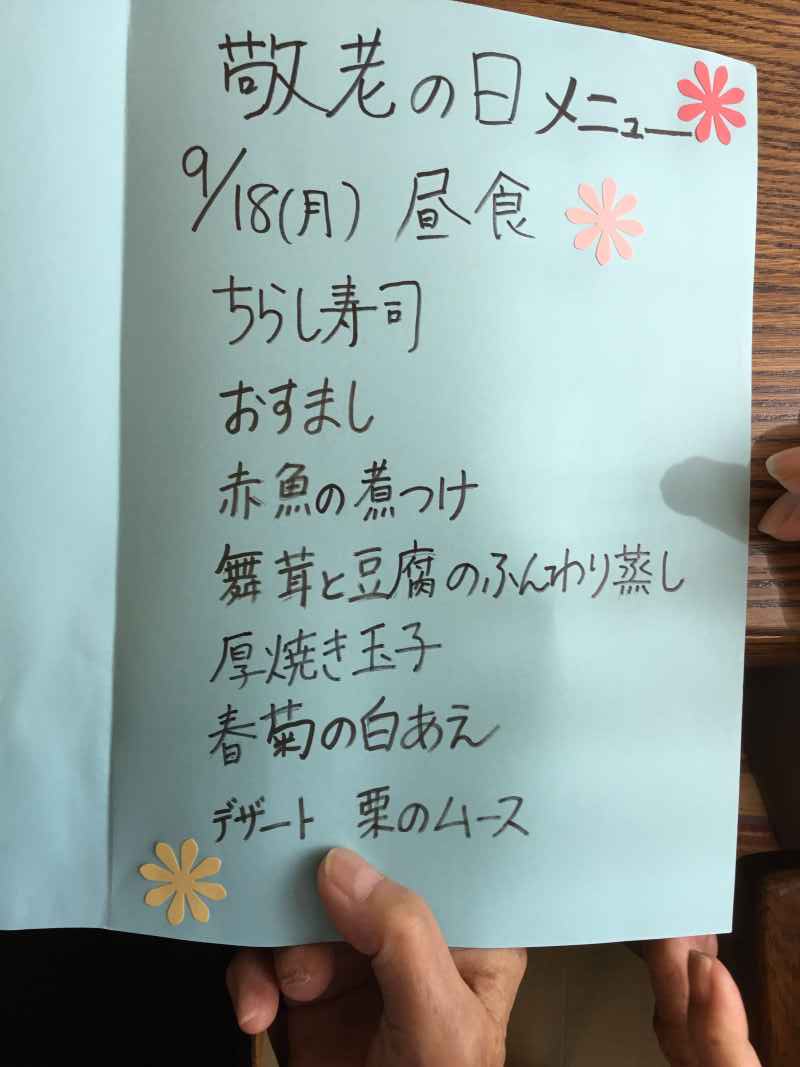 敬老の日メニュー
9/18(月) 昼食
ちらし寿司
おすまし
赤魚の煮つけ
舞茸と豆腐のふんわり蒸し
厚焼き玉子
春菊の白あえ
デザート 栗のムース